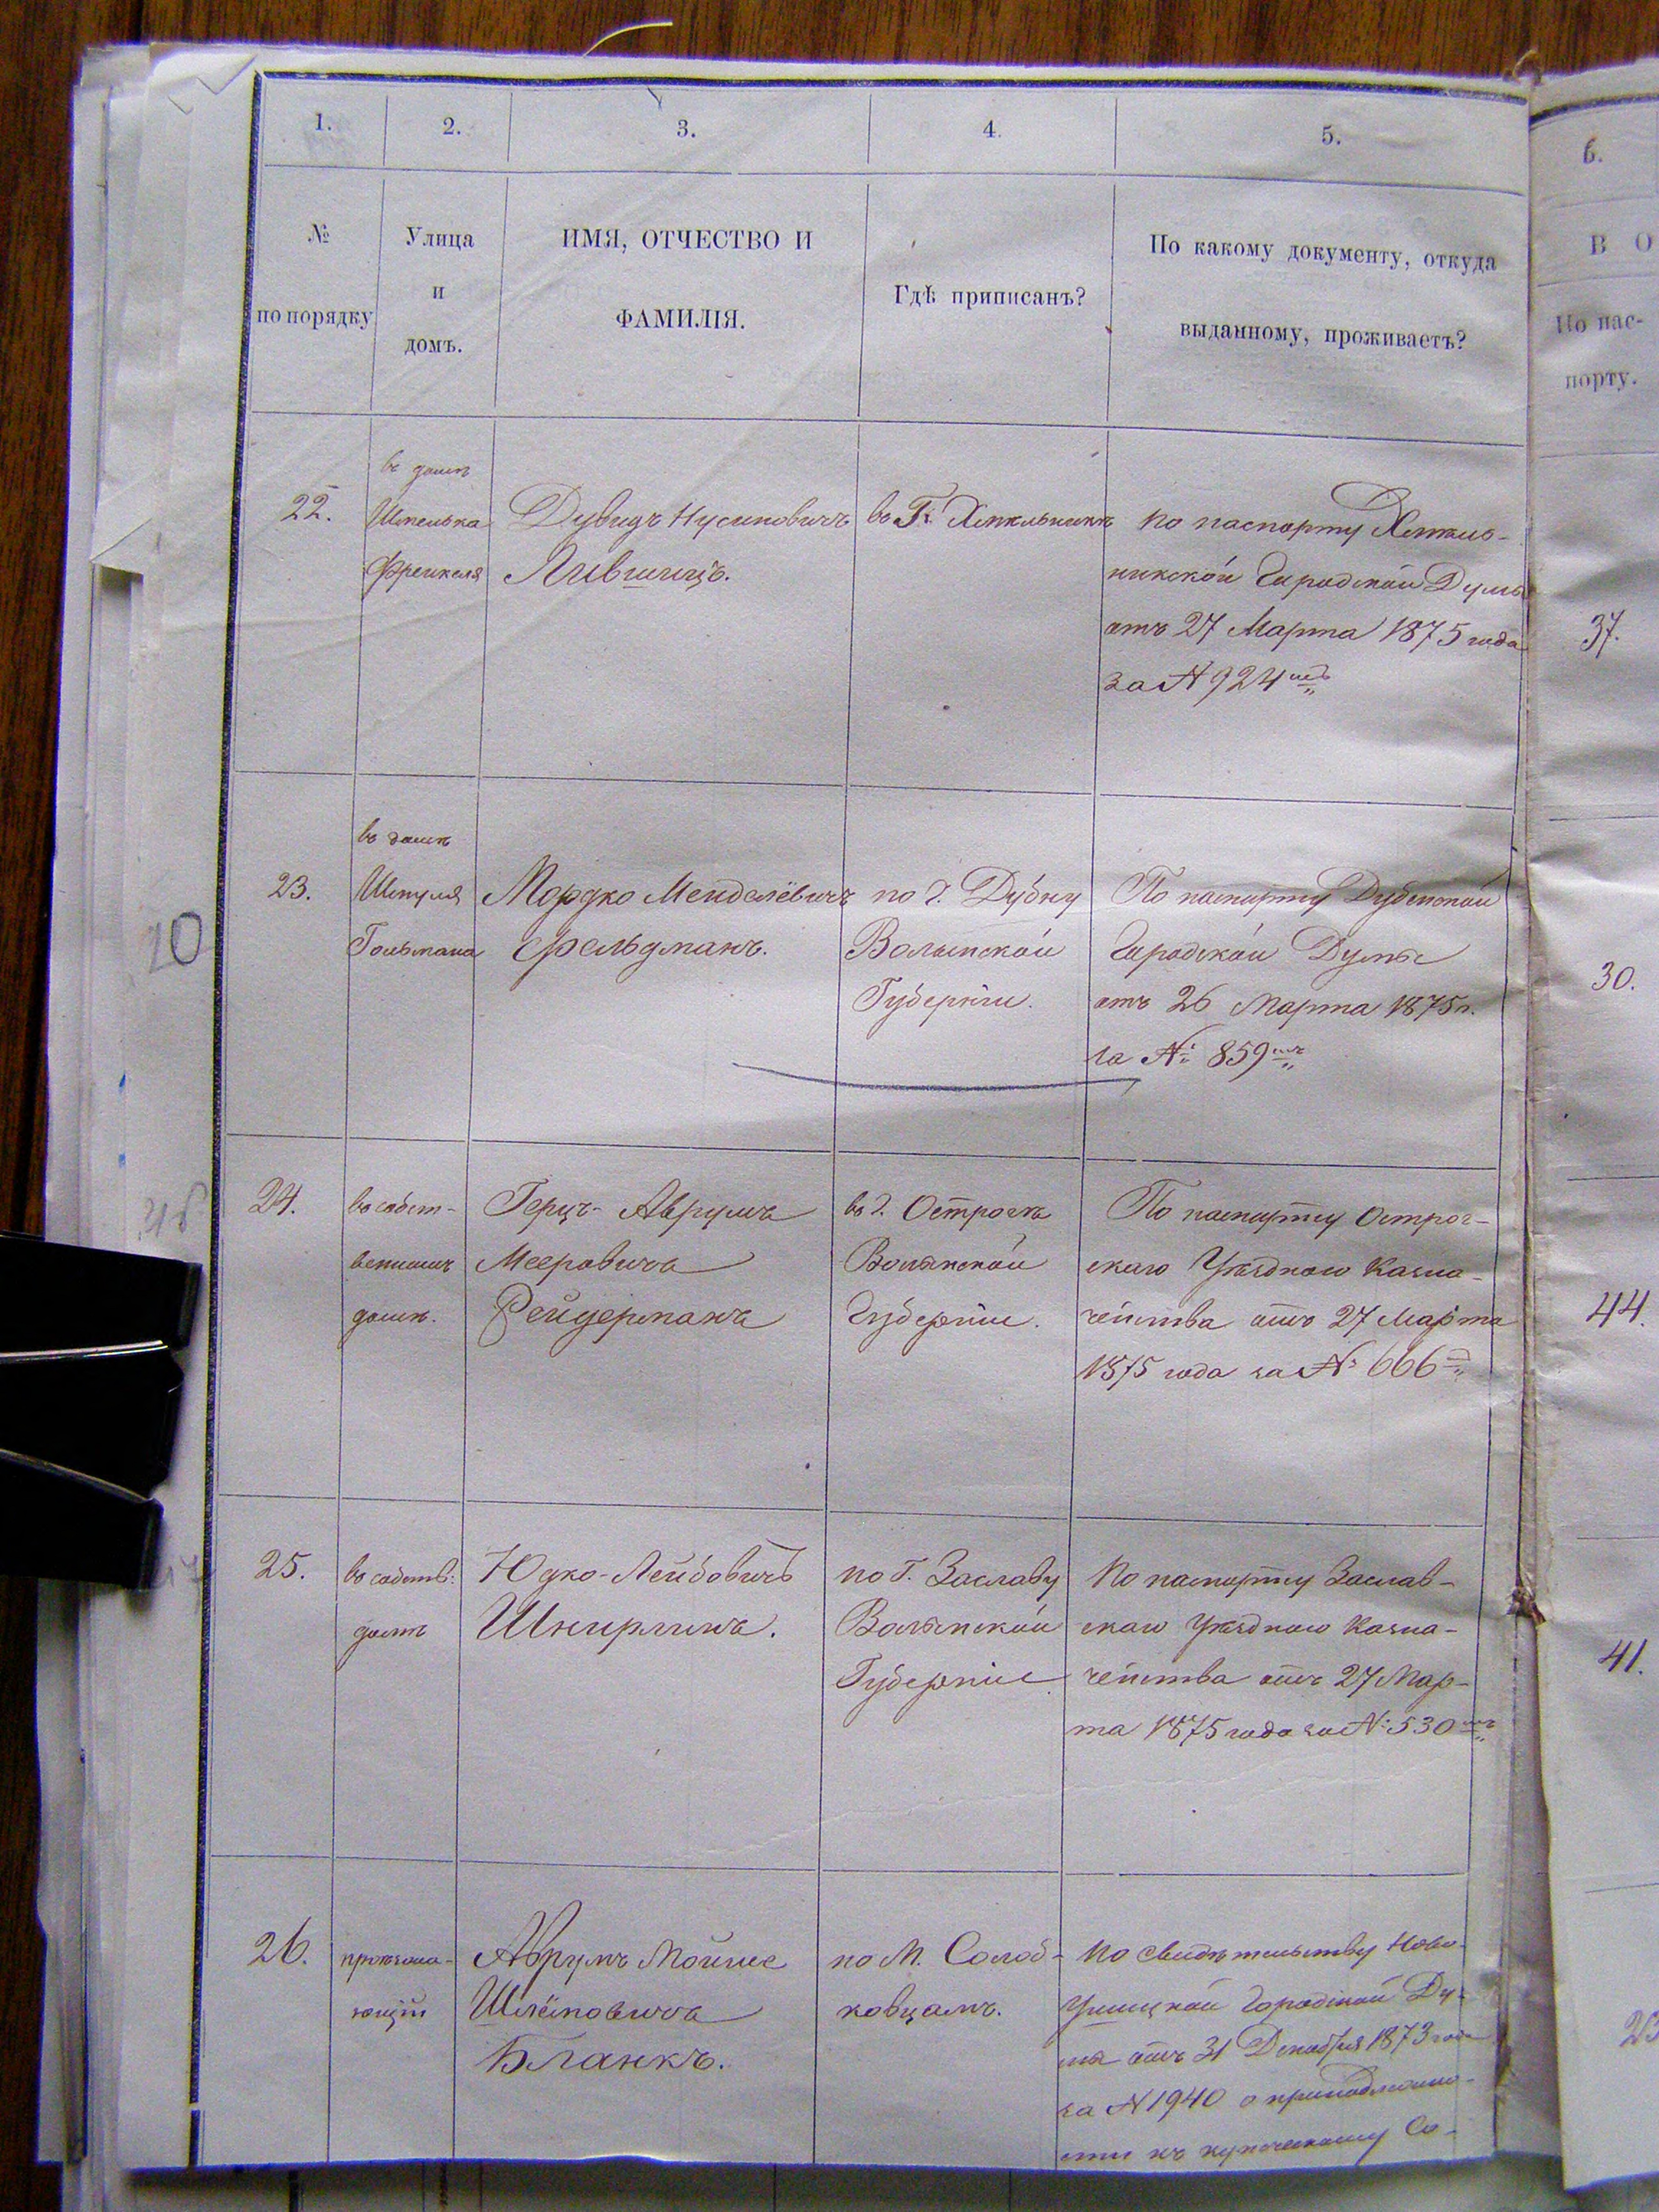 1.
2.
3.
4.
5.
6.
№
по порядку
Улица
и
домъ.
ИМЯ, ОТЧЕСТВО И
ФАМИЛІЯ.
Гдѣ приписанъ?
По какому документу, откуда
выданному, проживаетъ?
В О
По пас-
порту.
22.
въ домѣ
Шмелька
Френкеля
Дувидъ Нусиновичъ
Лившицъ.
въ Г. Хмѣльникѣ
по паспорту Хмѣль-
никской Городской Думы
отъ 27 Марта 1875 года
за № 924
37.
23.
въ домѣ
Шмуля
Гольтмана
Мордко Менделёвичъ
Фельдманъ.
по г. Дубну
Волынской
Губерніи.
По паспорту Дубенской
Городской Думы
отъ 26 Марта 1875 г.
за № 859
30.
20
24.
въ собст-
венномъ
домѣ.
Герцъ-Аврумъ
Мееровичъ
Рейдерманъ
въ г. Острогѣ
Волынской
Губерніи.
По паспорту Острог-
скаго Уѣзднаго Казна-
чейства отъ 27 Марта
1875 года за № 666
44.
25.
въ собств:
домѣ
Юдко-Лейбовичъ
Шнирлинъ.
по Г. Заславу
Волынской
Губерніи
По паспорту Заслав-
скаго Уѣзднаго Казна-
чейства отъ 27 Мар-
та 1875 года за № 530
41.
26.
проѣзжа-
ющій
Аврумъ Мойше
Шлёмовичъ
Бланкъ.
по М. Солоб-
ковцамъ.
по свидѣтельству Ново-
Ушицкой Городской Ду-
мы отъ 31 Декабря 1873 года
за № 1940 о принадлежно-
сти къ купеческому Со-